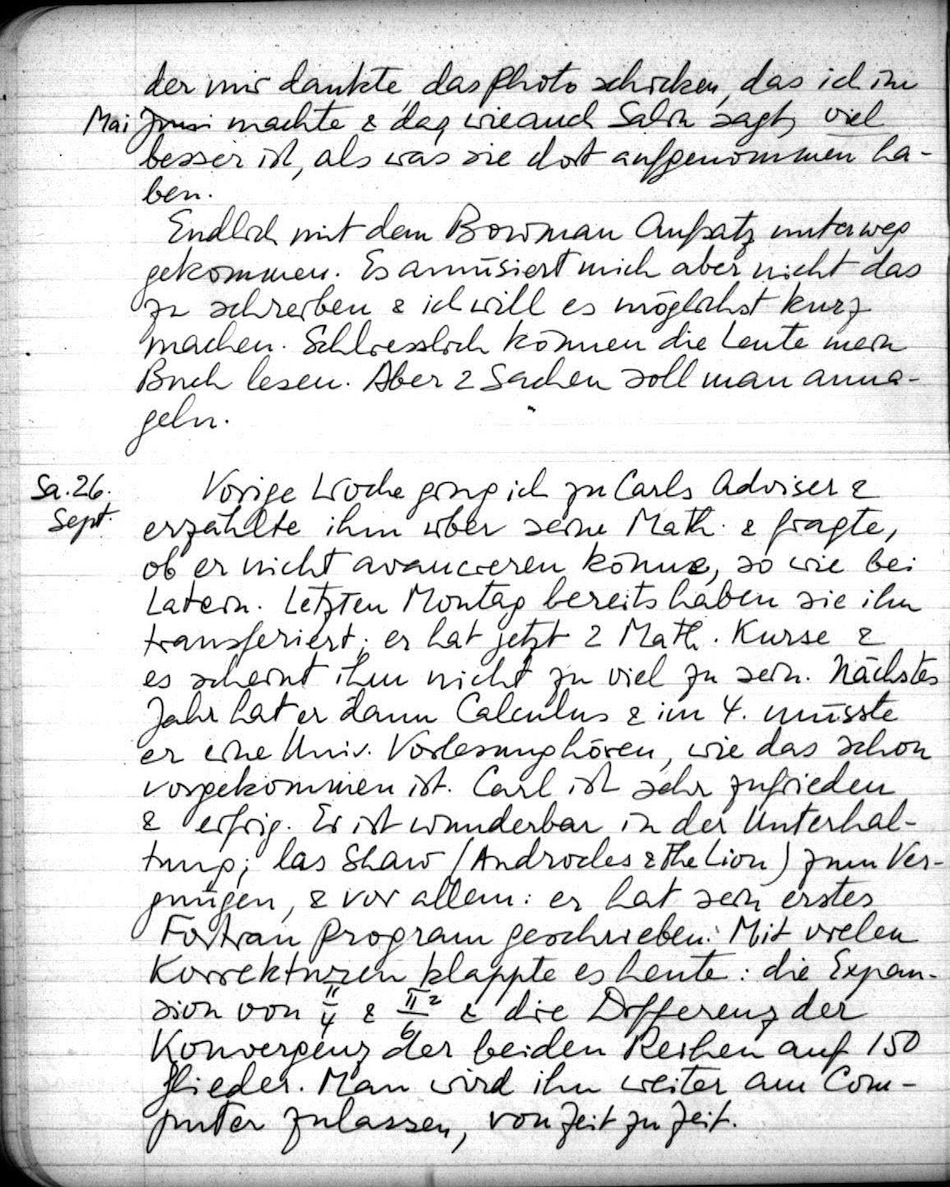 der mir dankte das Photo schicken, das ich im
Mai Juni machte & das, wie auch Salin sagt, viel
besser ist, als was sie dort aufgenommen ha-
ben.
Endlich mit dem Bowman Aufsatz unterwegs
gekommen. Es amüsiert mich aber nicht das
zu schreiben & ich will es möglichst kurz
machen. Schliesslich können die Leute mein
Buch lesen. Aber 2 Sachen soll man anna-
geln.
Sa. 26. Sept.
Vorige Woche ging ich zu Carls Adviser &
erzählte ihm über seine Math. & fragte,
ob er nicht avancieren könne, so wie bei
Latein. Letzten Montag bereits haben sie ihn
transferiert; er hat jetzt 2 Math. Kurse &
es scheint ihm nicht zu viel zu sein. Nächstes
Jahr hat er dann Calculus & im 4. müsste
er eine Univ. Vorlesung hören, wie das schon
vorgekommen ist. Carl ist sehr zufrieden
& eifrig. Er ist wunderbar in der Unterhal-
tung; las Shaw (Androcles & the Lion) zum Ver-
gnügen, & vor allem: er hat sein erstes
Fortran Program geschrieben. Mit vielen
Korrekturen klappte es heute: die Expan-
sion von π/4 & π²/6 & die Differenz der
Konvergenz der beiden Reihen auf 150
Glieder. Man wird ihn weiter am Com-
puter zulassen, von Zeit zu Zeit.